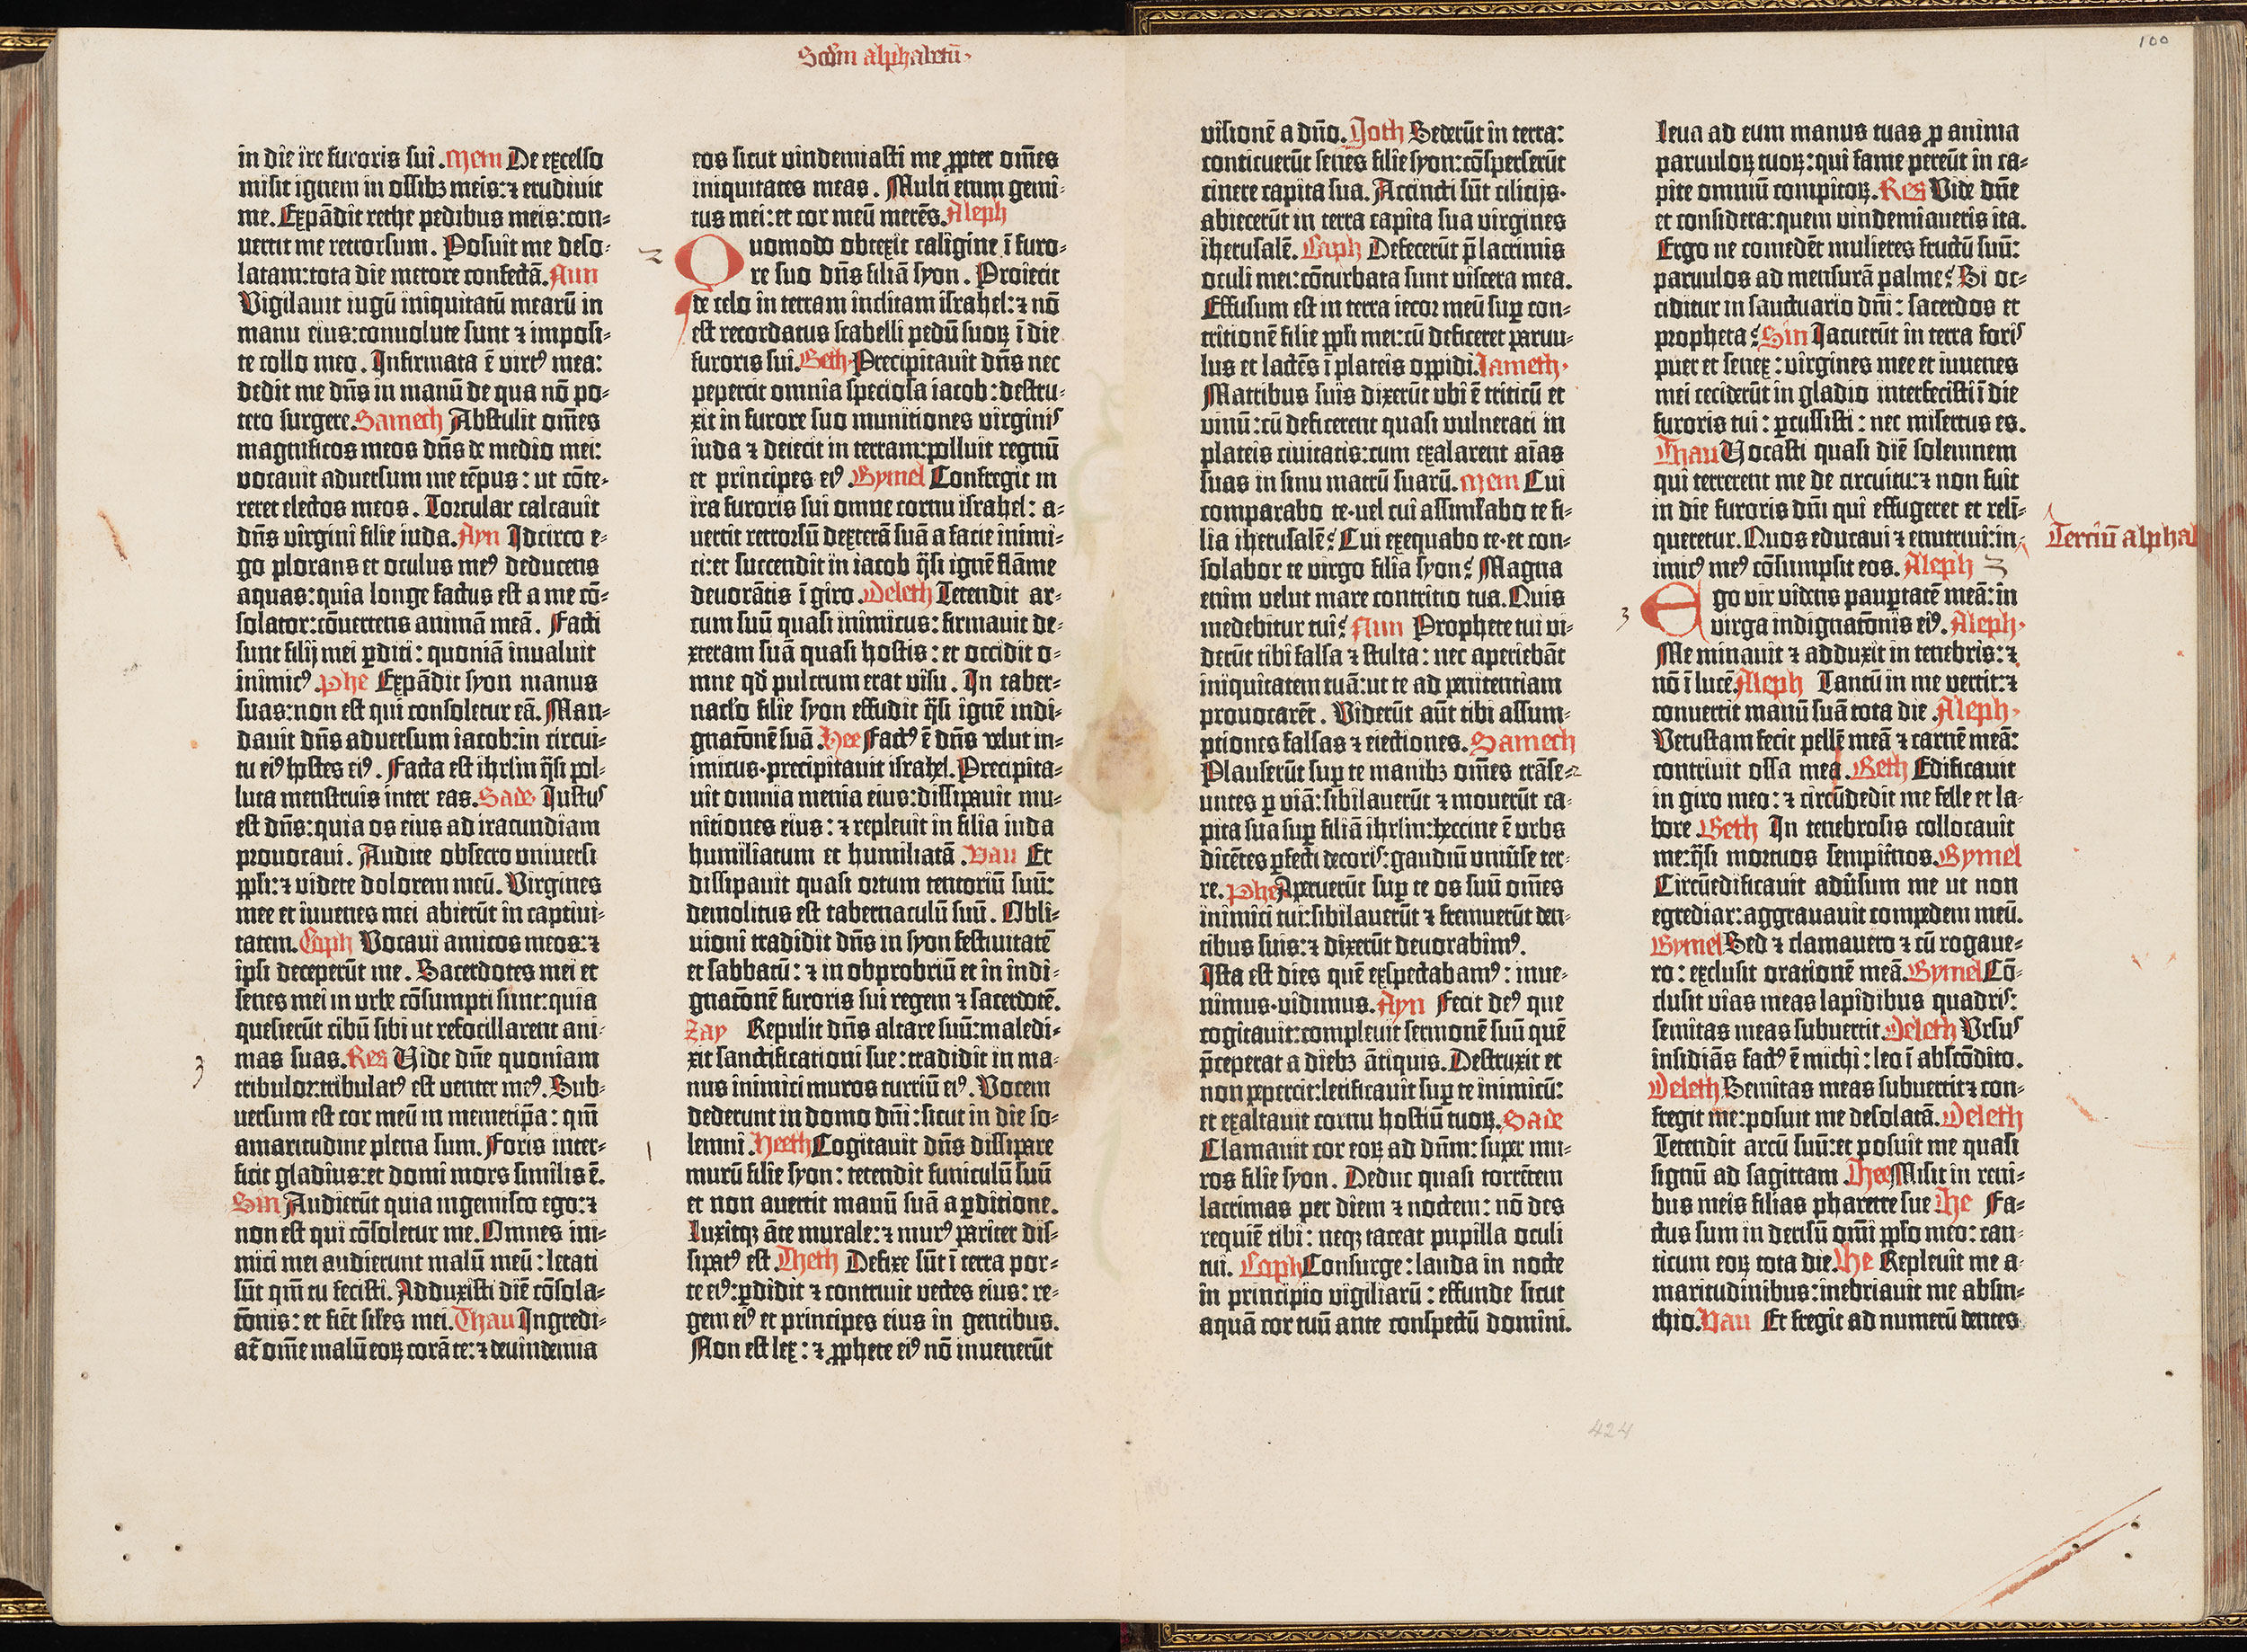 Scd̃m alphabetū·
in die ire furoris sui. Mem De excelso
misit ignem in ossibꝫ meis: ⁊ erudiuit
me. Expādit rethe pedibus meis: con⸗
uertit me retrorsum. Posuit me deso⸗
latam: tota die merore confectā. Nun
Vigilauit iugū iniquitatū mearū in
manu eius: conuolute sunt ⁊ imposi⸗
te collo meo. Infirmata ē virtꝰ mea:
dedit me dn̄s in manū de qua nō po⸗
tero surgere. Samech Abstulit om̄es
magnificos meos dn̄s de medio mei:
vocauit aduersum me tēpus: ut cōte⸗
reret electos meos. Torcular calcauit
dn̄s virgini filie iuda. Ayn Idcirco e⸗
go plorans et oculus meꝰ deducens
aquas: quia longe factus est a me cō⸗
solator: cōuertens animā meā. Facti
sunt filij mei ꝑditi: quoniā inualuit
inimicꝰ. Phe Expādit syon manus
suas: non est qui consoletur eā. Man⸗
dauit dn̄s aduersum iacob: in circui⸗
tu eiꝰ hostes eiꝰ. Facta est ihrl̄m q̄si pol⸗
luta menstruis inter eas. Sade Iustus
est dn̄s: quia os eius ad iracundiam
prouocaui. Audite obsecro uniuersi
ppl̄i: ⁊ videte dolorem meū. Virgines
mee et iuuenes mei abierūt in captiui⸗
tatem. Coph Vocaui amicos meos: ⁊
ipsi deceperūt me. Sacerdotes mei et
senes mei in urbe cōsumpti sunt: quia
quesierūt cibū sibi ut refocillarent ani⸗
mas suas. Res Vide dn̄e quoniam
3
tribulor: tribulatꝰ est uenter meꝰ. Sub⸗
uersum est cor meū in memetip̄a: qm̄
amaritudine plena sum. Foris inter⸗
ficit gladius: et domi mors similis ē.
Sin Audierūt quia ingemisco ego: ⁊
non est qui cōsoletur me. Omnes ini⸗
mici mei audierunt malū meū: letati
sūt qm̄ tu fecisti. Adduxisti diē cōsola⸗
tōnis: et fiēt sil̄es mei. Thau Ingredi⸗
at̄ om̄e malū eoꝝ corā te: ⁊ deuindemia
eos sicut vindemiasti me ꝓpter om̄es
iniquitates meas. Multi enim gemi⸗
tus mei: et cor meū merēs. Aleph
2
Quomodo obtexit caligine ī furo⸗
re suo dn̄s filiā syon. Proiecit
de celo in terram inclitam israhel: ⁊ nō
est recordatus scabelli pedū suoꝝ ī die
furoris sui. Beth· Precipitauit dn̄s nec
pepercit omnia speciosa iacob: destru⸗
xit in furore suo munitiones virginis
iuda ⁊ deiecit in terram: polluit regnū
et principes eiꝰ. Gymel Confregit in
ira furoris sui omne cornu israhel: a⸗
uertit retrorsū dexterā suā a facie inimi⸗
ci: et succendit in iacob q̄si ignē flāme
deuorātis ī giro. Deleth Tetendit ar⸗
cum suū quasi inimicus: firmauit de⸗
xteram suā quasi hostis: et occidit o⸗
mne qd̄ pulcrum erat visu. In taber⸗
nacl̄o filie syon effudit q̄si ignē indi⸗
gnatōnē suā. Hee Factꝰ ē dn̄s velut in⸗
imicus· precipitauit israhel. Precipita⸗
uit omnia menia eius: dissipauit mu⸗
nitiones eius: ⁊ repleuit in filia iuda
humiliatum et humiliatā. Vau Et
dissipauit quasi ortum tentoriū suū:
demolitus est tabernaculū suū. Obli⸗
uioni tradidit dn̄s in syon festiuitatē
et sabbatū: ⁊ in obprobriū et in indi⸗
gnatōnē furoris sui regem ⁊ sacerdotē.
Zay Repulit dn̄s altare suū: maledi⸗
xit sanctificationi sue: tradidit in ma⸗
nus inimici muros turriū eiꝰ. Vocem
dederunt in domo dn̄i: sicut in die so⸗
lemni. Heeth Cogitauit dn̄s dissipare
murū filie syon: tetendit funiculū suū
et non auertit manū suā a ꝑditione.
Luxitqꝫ āte murale: ⁊ murꝰ pariter dis⸗
sipatꝰ est. Theth Defixe sūt ī terra por⸗
te eiꝰ: ꝑdidit ⁊ contriuit vectes eius: re⸗
gem eiꝰ et principes eius in gentibus.
Non est lex: ⁊ ꝓphete eiꝰ nō inuenerūt
100
visionē a dn̄o. Joth Sederūt in terra:
conticuerūt senes filie syon: cōsperserūt
cinere capita sua. Accincti sūt cilicijs·
abiecerūt in terra capita sua virgines
iherusalē. Caph Defecerūt p̄ lacrimis
oculi mei: cōturbata sunt viscera mea.
Effusum est in terra iecor meū suꝑ con⸗
tritionē filie ppl̄i mei: cū deficeret paruu⸗
lus et lactēs ī plateis oppidi. Lameth·
Matribus suis dixerūt ubi ē triticū et
vinū: cū deficerent quasi vulnerati in
plateis ciuitatis: cum exalarent aīas
suas in sinu matrū suarū. Mem Cui
comparabo te· uel cui assimil̄abo te fi⸗
lia iherusalē? Cui exequabo te· et con⸗
solabor te virgo filia syon? Magna
enim velut mare contritio tua. Quis
medebitur tui? Nun Prophete tui vi⸗
derūt tibi falsa ⁊ stulta: nec aperiebāt
iniquitatem tuā: ut te ad penitentiam
prouocarēt. Viderūt aūt tibi assum⸗
ptiones falsas ⁊ eiectiones. Samech
Plauserūt suꝑ te manibꝫ om̄es trāse⸗
untes ꝑ viā: sibilauerūt ⁊ mouerūt ca⸗
pita sua suꝑ filiā ihrl̄m: heccine ē urbs
dicētes ꝑfecti decoris: gaudiū uniūse ter⸗
re. Phe Aperuerūt suꝑ te os suū om̄es
inimici tui: sibilauerūt ⁊ fremuerūt den⸗
tibus suis: ⁊ dixerūt deuorabimꝰ.
Ista est dies quē exspectabamꝰ: inue⸗
nimus· vidimus. Ayn Fecit deꝰ que
cogitauit: compleuit sermonē suū quē
p̄ceperat a diebꝫ ātiquis. Destruxit et
non pepercit: letificauit suꝑ te inimicū:
et exaltauit cornu hostiū tuoꝝ. Sade
Clamauit cor eoꝝ ad dn̄m: super mu⸗
ros filie syon. Deduc quasi torrētem
lacrimas per diem ⁊ noctem: nō des
requiē tibi: neqꝫ taceat pupilla oculi
tui. Coph Consurge: lauda in nocte
in principio vigiliarū: effunde sicut
aquā cor tuū ante conspectū domini.
leua ad eum manus tuas ꝓ anima
paruuloꝝ tuoꝝ: qui fame pereūt in ca⸗
pite omniū compitoꝝ. Res Vide dn̄e
et considera: quem vindemiaueris ita.
Ergo ne comedēt mulieres fructū suū:
paruulos ad mensurā palme? Si oc⸗
ciditur in sanctuario dn̄i: sacerdos et
propheta? Sin Iacuerūt in terra foris
puer et senex: virgines mee et iuuenes
mei ceciderūt in gladio interfecisti ī die
furoris tui: ꝑcussisti: nec misertus es.
Thau Vocasti quasi diē solemnem
qui terrerent me de circuitu: ⁊ non fuit
in die furoris dn̄i qui effugeret et reli⸗
queretur. Quos educaui ⁊ enutriui: in⸗
Terciū alpha
imicꝰ meꝰ cōsumpsit eos. Aleph
3
Ego vir vidēs pauꝑtatē meā: in
virga indignatōnis eiꝰ. Aleph·
Me minauit ⁊ adduxit in tenebris: ⁊
nō ī lucē. Aleph Tantū in me vertit: ⁊
conuertit manū suā tota die. Aleph·
Vetustam fecit pellē meā ⁊ carnē meā:
contriuit ossa mea. Beth Edificauit
in giro meo: ⁊ circūdedit me felle et la⸗
bore. Beth In tenebrosis collocauit
me: q̄si mortuos sempit̄nos. Gymel
Circūedificauit adūsum me ut non
egrediar: aggrauauit compedem meū.
Gymel Sed ⁊ clamauero ⁊ cū rogaue⸗
ro: exclusit orationē meā. Gymel Cō⸗
clusit vias meas lapidibus quadris:
semitas meas subuertit. Deleth Vrsus
insidiās factꝰ ē michi: leo ī abscōdito.
Deleth Semitas meas subuertit ⁊ con⸗
fregit me: posuit me desolatā. Deleth
Tetendit arcū suū: et posuit me quasi
signū ad sagittam. Hee Misit in reni⸗
bus meis filias pharetre sue. He Fa⸗
ctus sum in derisū om̄i ppl̄o meo: can⸗
ticum eoꝝ tota die. He Repleuit me a⸗
maritudinibus: inebriauit me absin⸗
thio. Vau Et fregit ad numerū dentes
424